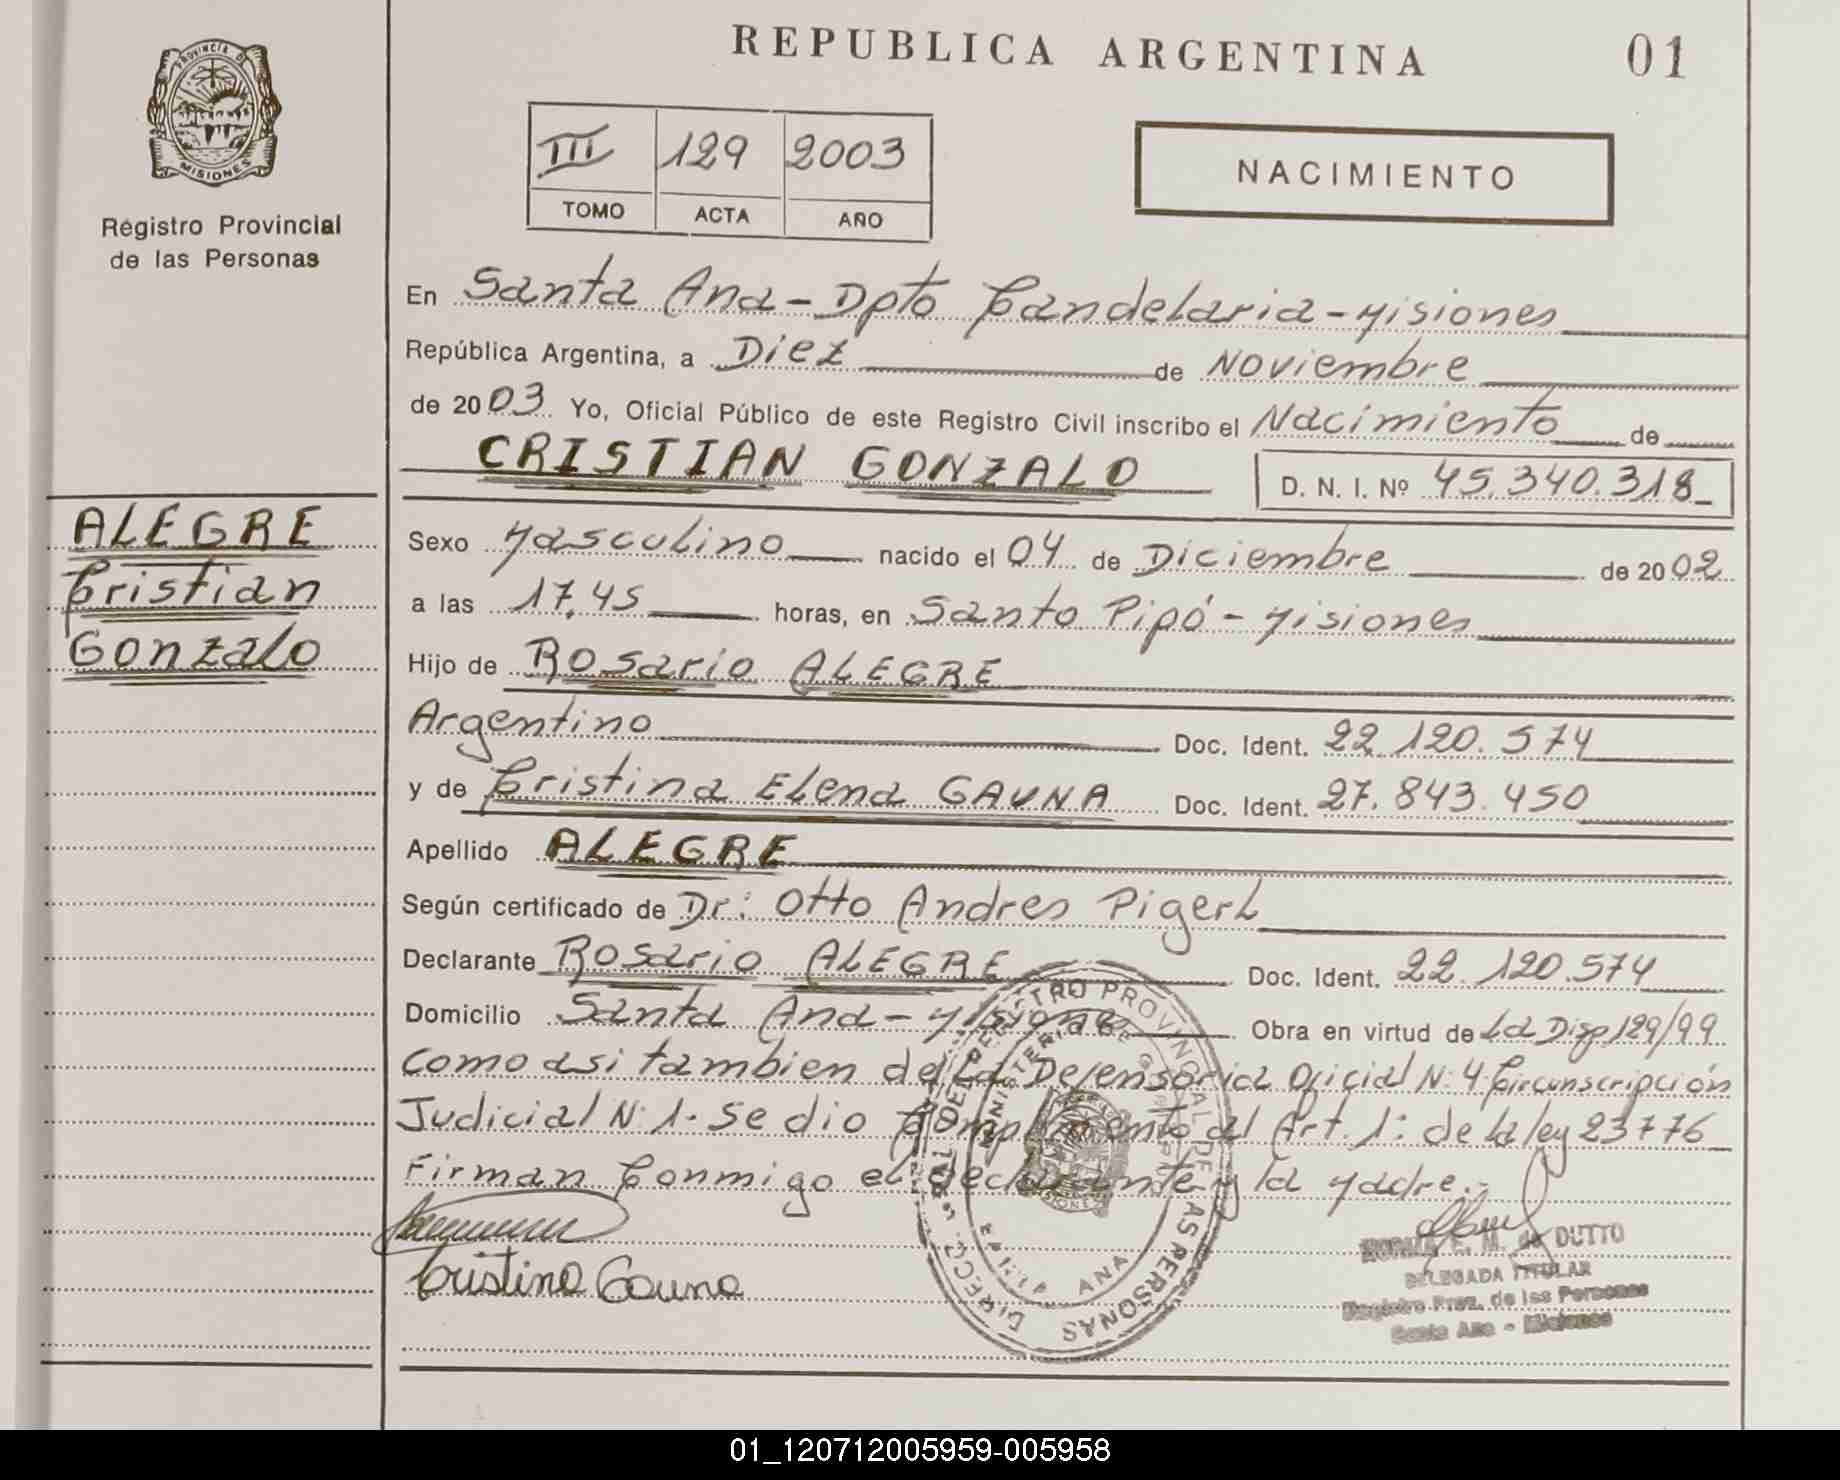 REPUBLICA ARGENTINA
01
PROVINCIA DE MISIONES
Registro Provincial
de las Personas
III 129 2003
TOMO ACTA AÑO
NACIMIENTO
En Santa Ana - Dpto Candelaria - Misiones
República Argentina, a Diez de Noviembre
de 2003 Yo, Oficial Público de este Registro Civil inscribo el Nacimiento de
CRISTIAN GONZALO D. N. I. Nº 45.340.318
ALEGRE
Cristian
Gonzalo
Sexo Masculino nacido el 04 de Diciembre de 2002
a las 17,45 horas, en Santo Pipó - Misiones
Hijo de Rosario ALEGRE
Argentino Doc. Ident. 22.120.574
y de Cristina Elena GAUNA Doc. Ident. 27.843.450
Apellido ALEGRE
Según certificado de Dr: Otto Andres Pigerl
Declarante Rosario ALEGRE Doc. Ident. 22.120.574
Domicilio Santa Ana - Misiones Obra en virtud de La Disp 129/99
como asi tambien de la Defensoria Oficial N: 4 Circunscripción
Judicial N: 1. Se dio Complimiento al Art. 1: de la ley 23776
Firman Conmigo el declarante y la Madre.-
Cristina Gauna
E. M. de DUTTO
DELEGADA TITULAR
Registro Prov. de las Personas
Santa Ana - Misiones
01_120712005959-005958